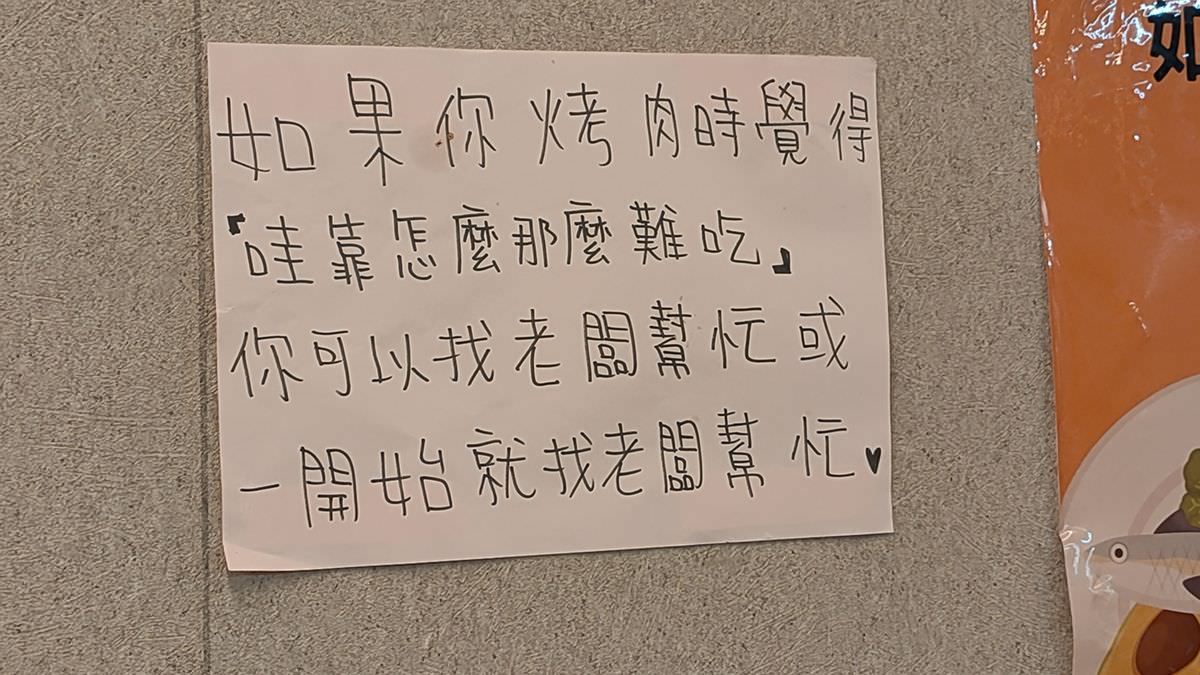 如果你烤肉時覺得
『哇靠怎麼那麼難吃』
你可以找老闆幫忙或
一開始就找老闆幫忙♥
如